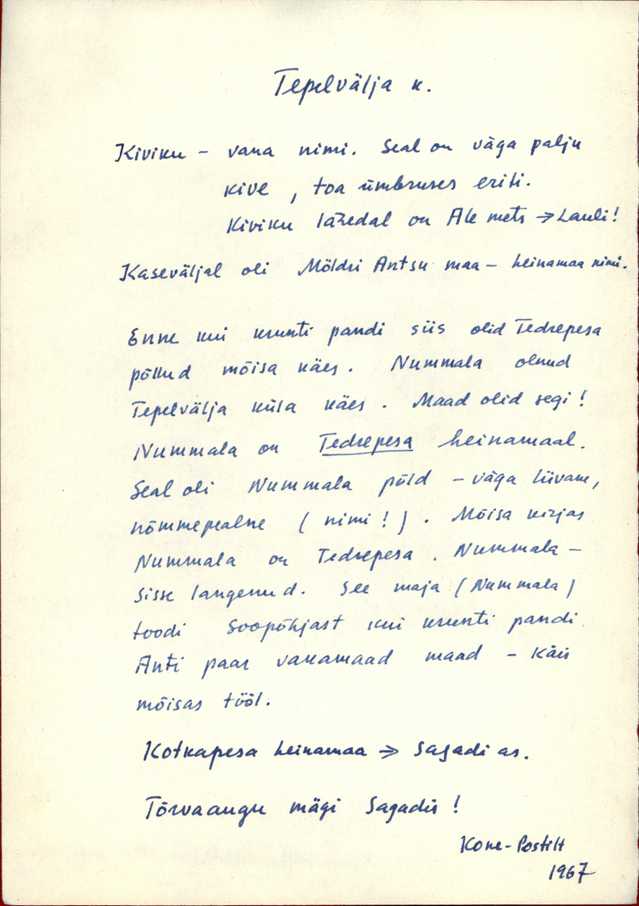 Tepelvälja k.
Kiviku – vana nimi. Seal on väga palju
kive, toa ümbruses eriti.
Kiviku lähedal on Ale mets → Lauli!
Kaseväljal oli Möldri Antsu maa – heinamaa nimi.
Enne kui krunti pandi siis olid Tedrepesa
põllud mõisa käes. Nummala olnud
Tepelvälja küla käes. Maad olid segi!
Nummala on Tedrepesa heinamaal.
Seal oli Nummala põld – väga liivane,
nõmmepealne (nimi!). Mõisa kirjas
Nummala on Tedrepesa. Nummala –
sisse langenud. See maja (Nummala)
toodi Soopõhjast kui krunti pandi.
Anti paar vakamaad maad – käis
mõisas tööl.
Kotkapesa heinamaa → Sagadi as.
Tõrvaaugu mägi Sagadis!
Kone-Postilt
1967